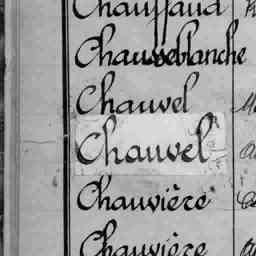 Chauffaud
Chausseblanche
Chauvel
Chauvel
Chauvière
Chauvière